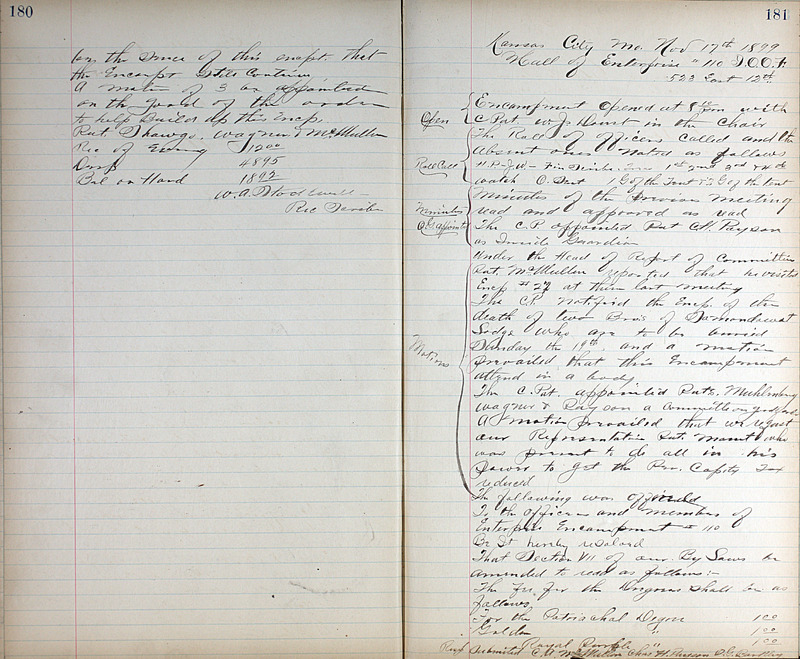 180
by the Scribe of this encpt. that
the Encampt
A motion of 3 be appointed
on the good of the order
to help Build up this Encp.
Pat. Shawgo, Wagner & McMullen
Rec of Evening $12.00
48.95
Bal on Hand 18.92
W.A.
Rec Scribe
181
Kansas City Mo. Nov 17th 1899
Hall of Enterprise # 110 I.O.O.F.
523 East 12th
Open
Encampment Opened at 8 pm with
C. Pat W.J. in the Chair
Roll Call
The Roll of officers called and the
absent ones Noted as follows
H.P. J.W. Fin Scribe 1st 2nd 3rd & 4th
watch O. Sent 1 G of the Tent 2 G of the tent
Minutes
Minutes of the previous meeting
read and approved as read
O.G. appointed
The C.P. appointed Pat C.H. Payson
as Inside Guardian
Under the Head of Report of Committees
Pat. McMullen reported that he visited
Encp # 27 at their last meeting
The C.P. Notified the Encp. of the
death of two Bros of
Lodge who are to be buried
Motions
Sunday the 19th and a motion
prevailed that this Encampment
attend in a body
The C. Pat. appointed Pats. Muhlenberg
Wagner & Payson a Committee on
A motion prevailed that we request
our Representative Pat. who
was present to do all in his
power to get the Per. Capita Tax
reduced
The following was offered
To the officers and members of
Enterprise Encampment # 110
Be It hereby resolved
That Section VII of our By Laws be
amended to read as follows:-
The fee for the Degrees shall be as
follows
For the Patriarchal Degree 1.00
Golden " 1.00
Royal Purple " 1.00
Resp Submitted C.A. McMullen Chas H. Payson